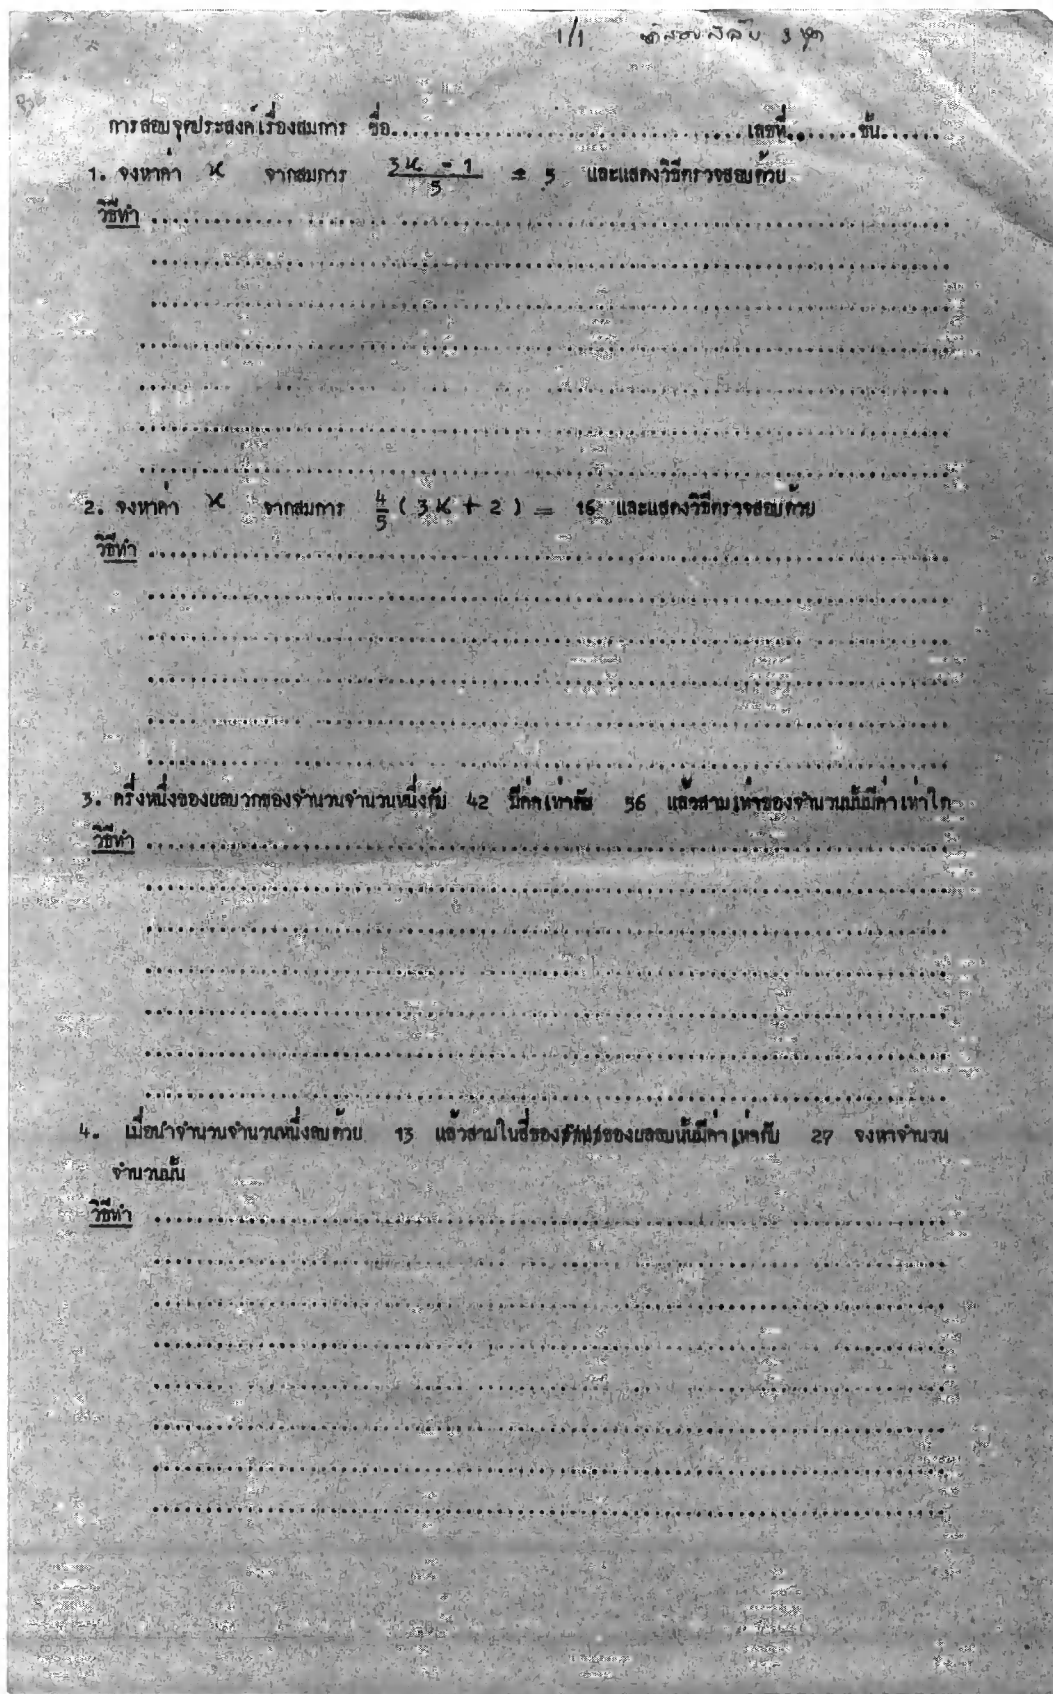 1/1 ข้อสอบมีฉบับ 3 ชุด
การสอบจุดประสงค์เรื่องสมการ ชื่อ.......................................เลขที่.......ชั้น......
1. จงหาค่า x จากสมการ (3x - 1)/5 = 5 และแสดงวิธีตรวจสอบด้วย
วิธีทำ
2. จงหาค่า x จากสมการ 4/5 ( 3x + 2 ) = 16 และแสดงวิธีตรวจสอบด้วย
วิธีทำ
3. ครึ่งหนึ่งของผลบวกของจำนวนจำนวนหนึ่งกับ 42 มีค่าเท่ากับ 56 แล้วสามเท่าของจำนวนนั้นมีค่าเท่าใด
วิธีทำ
4. เมื่อนำจำนวนจำนวนหนึ่งลบด้วย 13 แล้วสามในสี่ของผลลบนั้นมีค่าเท่ากับ 27 จงหาจำนวน
จำนวนนั้น
วิธีทำ